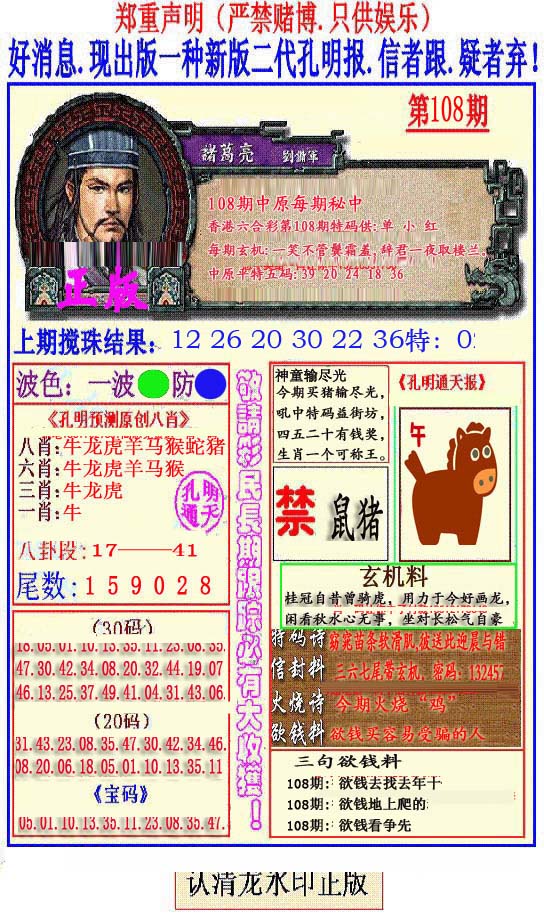 郑重声明（严禁赌博.只供娱乐）
好消息.现出版一种新版二代孔明报.信者跟.疑者弃！
第108期
諸葛亮
劉備軍
108期中原每期秘中
香港六合彩第108期特码供:单 小 红
每期玄机:一笑不管鬓霜盖,辞君一夜取楼兰.
中原平特五码:39 20 24 18 36
正版
上期搅珠结果: 12 26 20 30 22 36特:
波色: 一波 防
《孔明预测原创八肖》
八肖:牛龙虎羊马猴蛇猪
六肖:牛龙虎羊马猴
三肖:牛龙虎
一肖:牛
孔明通天
八卦段:17——41
尾数:159028
(30码)
18.05.01.10.13.35.11.23.08.35.
47.30.42.34.08.20.32.44.19.07
46.13.25.37.49.41.04.31.43.06.
(20码)
31.43.23.08.35.47.30.42.34.46.
08.20.06.18.05.01.10.13.35.11
《宝码》
05.01.10.13.35.11.23.08.35.47.
敬請彩民長期跟踪必有大收獲！
神童输尽光
今期买猪输尽光，
吼中特码益街坊，
四五二十有钱奖，
生肖一个可称王。
《孔明通天报》
午
禁 鼠猪
玄机料
桂冠自昔曾骑虎，用力于今好画龙，
闲看秋水心无事，坐对长松气自豪
特码诗 窈窕苗条软滑肌,彼送此迎晨与错
信封料 三六七尾带玄机，密码：132457
火烧诗 今期火烧“鸡”
欲钱料 欲钱买容易受骗的人
三句欲钱料
108期:欲钱去找去年干
108期:欲钱地上爬的
108期:欲钱看争先
认清龙水印正版